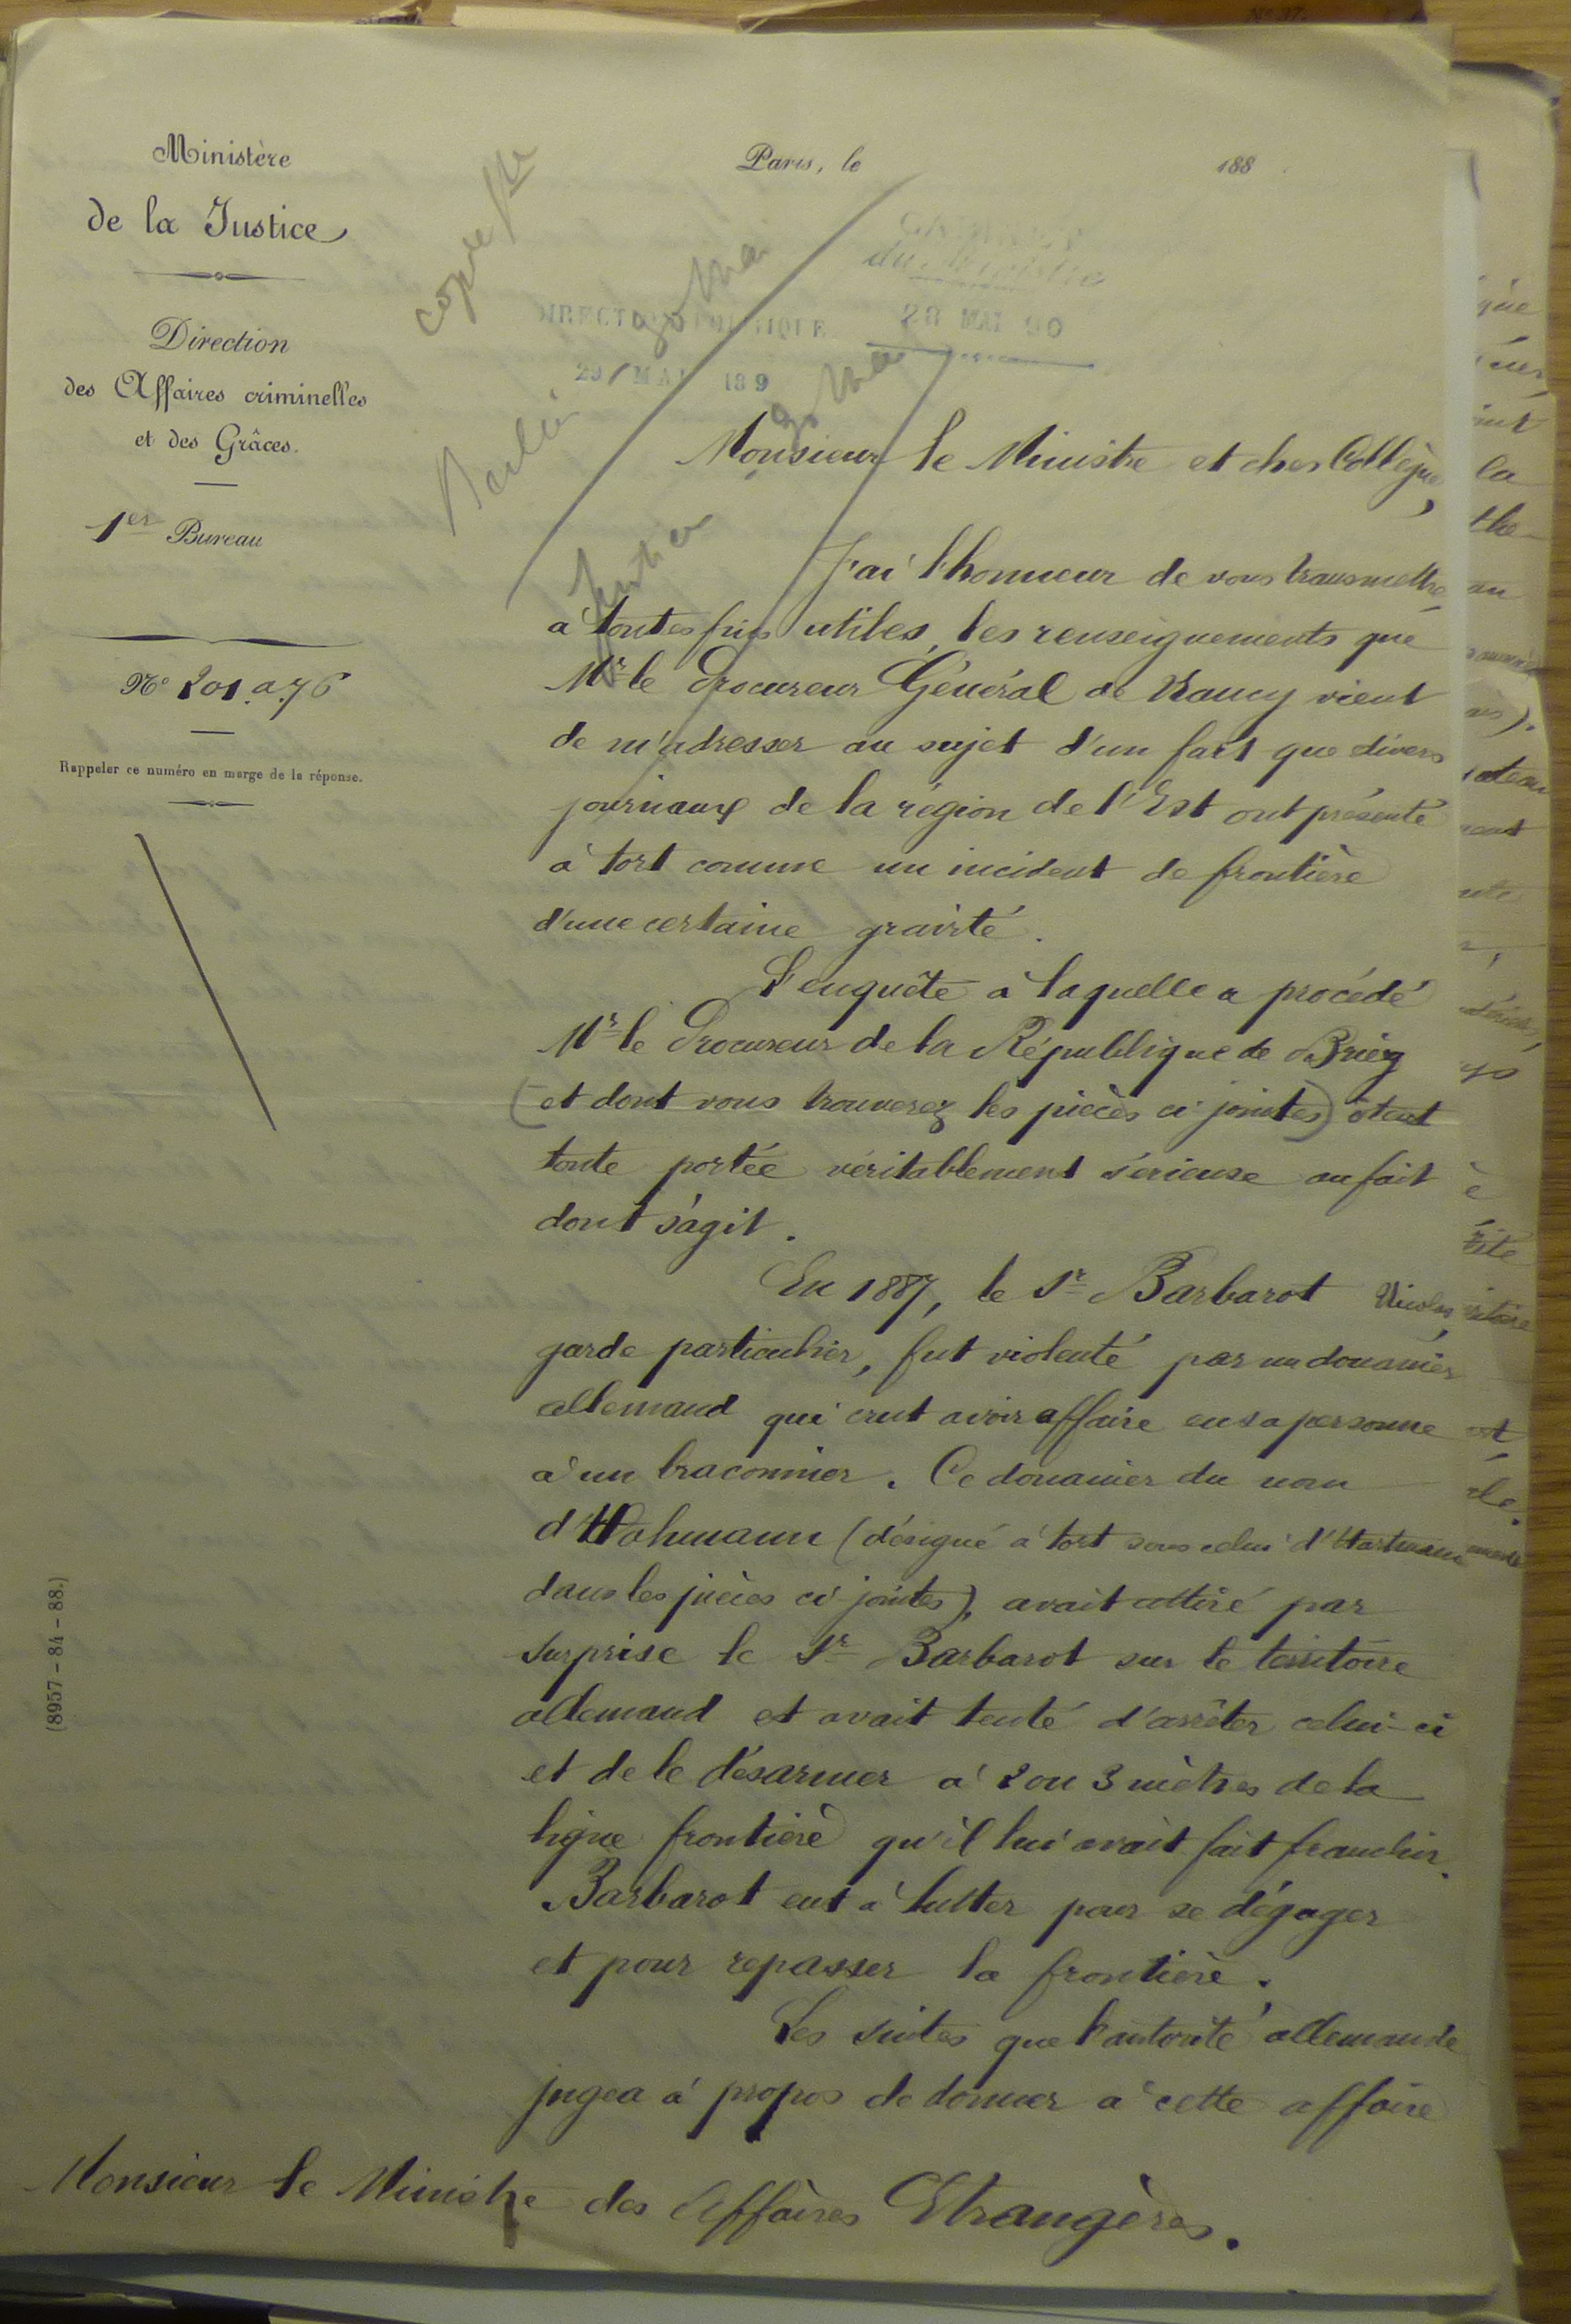 Ministère
de la Justice
Direction
des Affaires criminelles
et des Grâces.
1er Bureau
No 201.a.76
Rappeler ce numéro en marge de la réponse.
(8957-84-88.)
Paris, le 188
copie
CABINET
du Ministre
28 MAI 90
DIRECTION POLITIQUE
29 MAI 189
Berlin 30 Mai
Justice 30 Mai
Monsieur le Ministre et cher Collègue,
J'ai l'honneur de vous transmettre
à toutes fins utiles, les renseignements que
Mr le Procureur Général de Nancy vient
de m'adresser au sujet d'un fait que divers
journaux de la région de l'Est ont présenté
à tort comme un incident de frontière
d'une certaine gravité.
L'enquête à laquelle a procédé
Mr le Procureur de la République de Briey
(et dont vous trouverez les pièces ci-jointes) ôtent
toute portée véritablement sérieuse au fait
dont s'agit.
En 1887, le Sr Barbarot Nicolas,
garde particulier, fut violenté par un douanier
allemand qui crut avoir affaire en sa personne
à un braconnier. Ce douanier du nom
d'Hohmann (désigné à tort sous celui d'Hartmann
dans les pièces ci-jointes), avait attiré par
surprise le Sr Barbarot sur le territoire
allemand et avait tenté d'arrêter celui-ci
et de le désarmer à 2 ou 3 mètres de la
ligne frontière qu'il lui avait fait franchir.
Barbarot eut à lutter pour se dégager
et pour repasser la frontière.
Les suites que l'autorité allemande
jugea à propos de donner à cette affaire
Monsieur le Ministre des Affaires Etrangères.